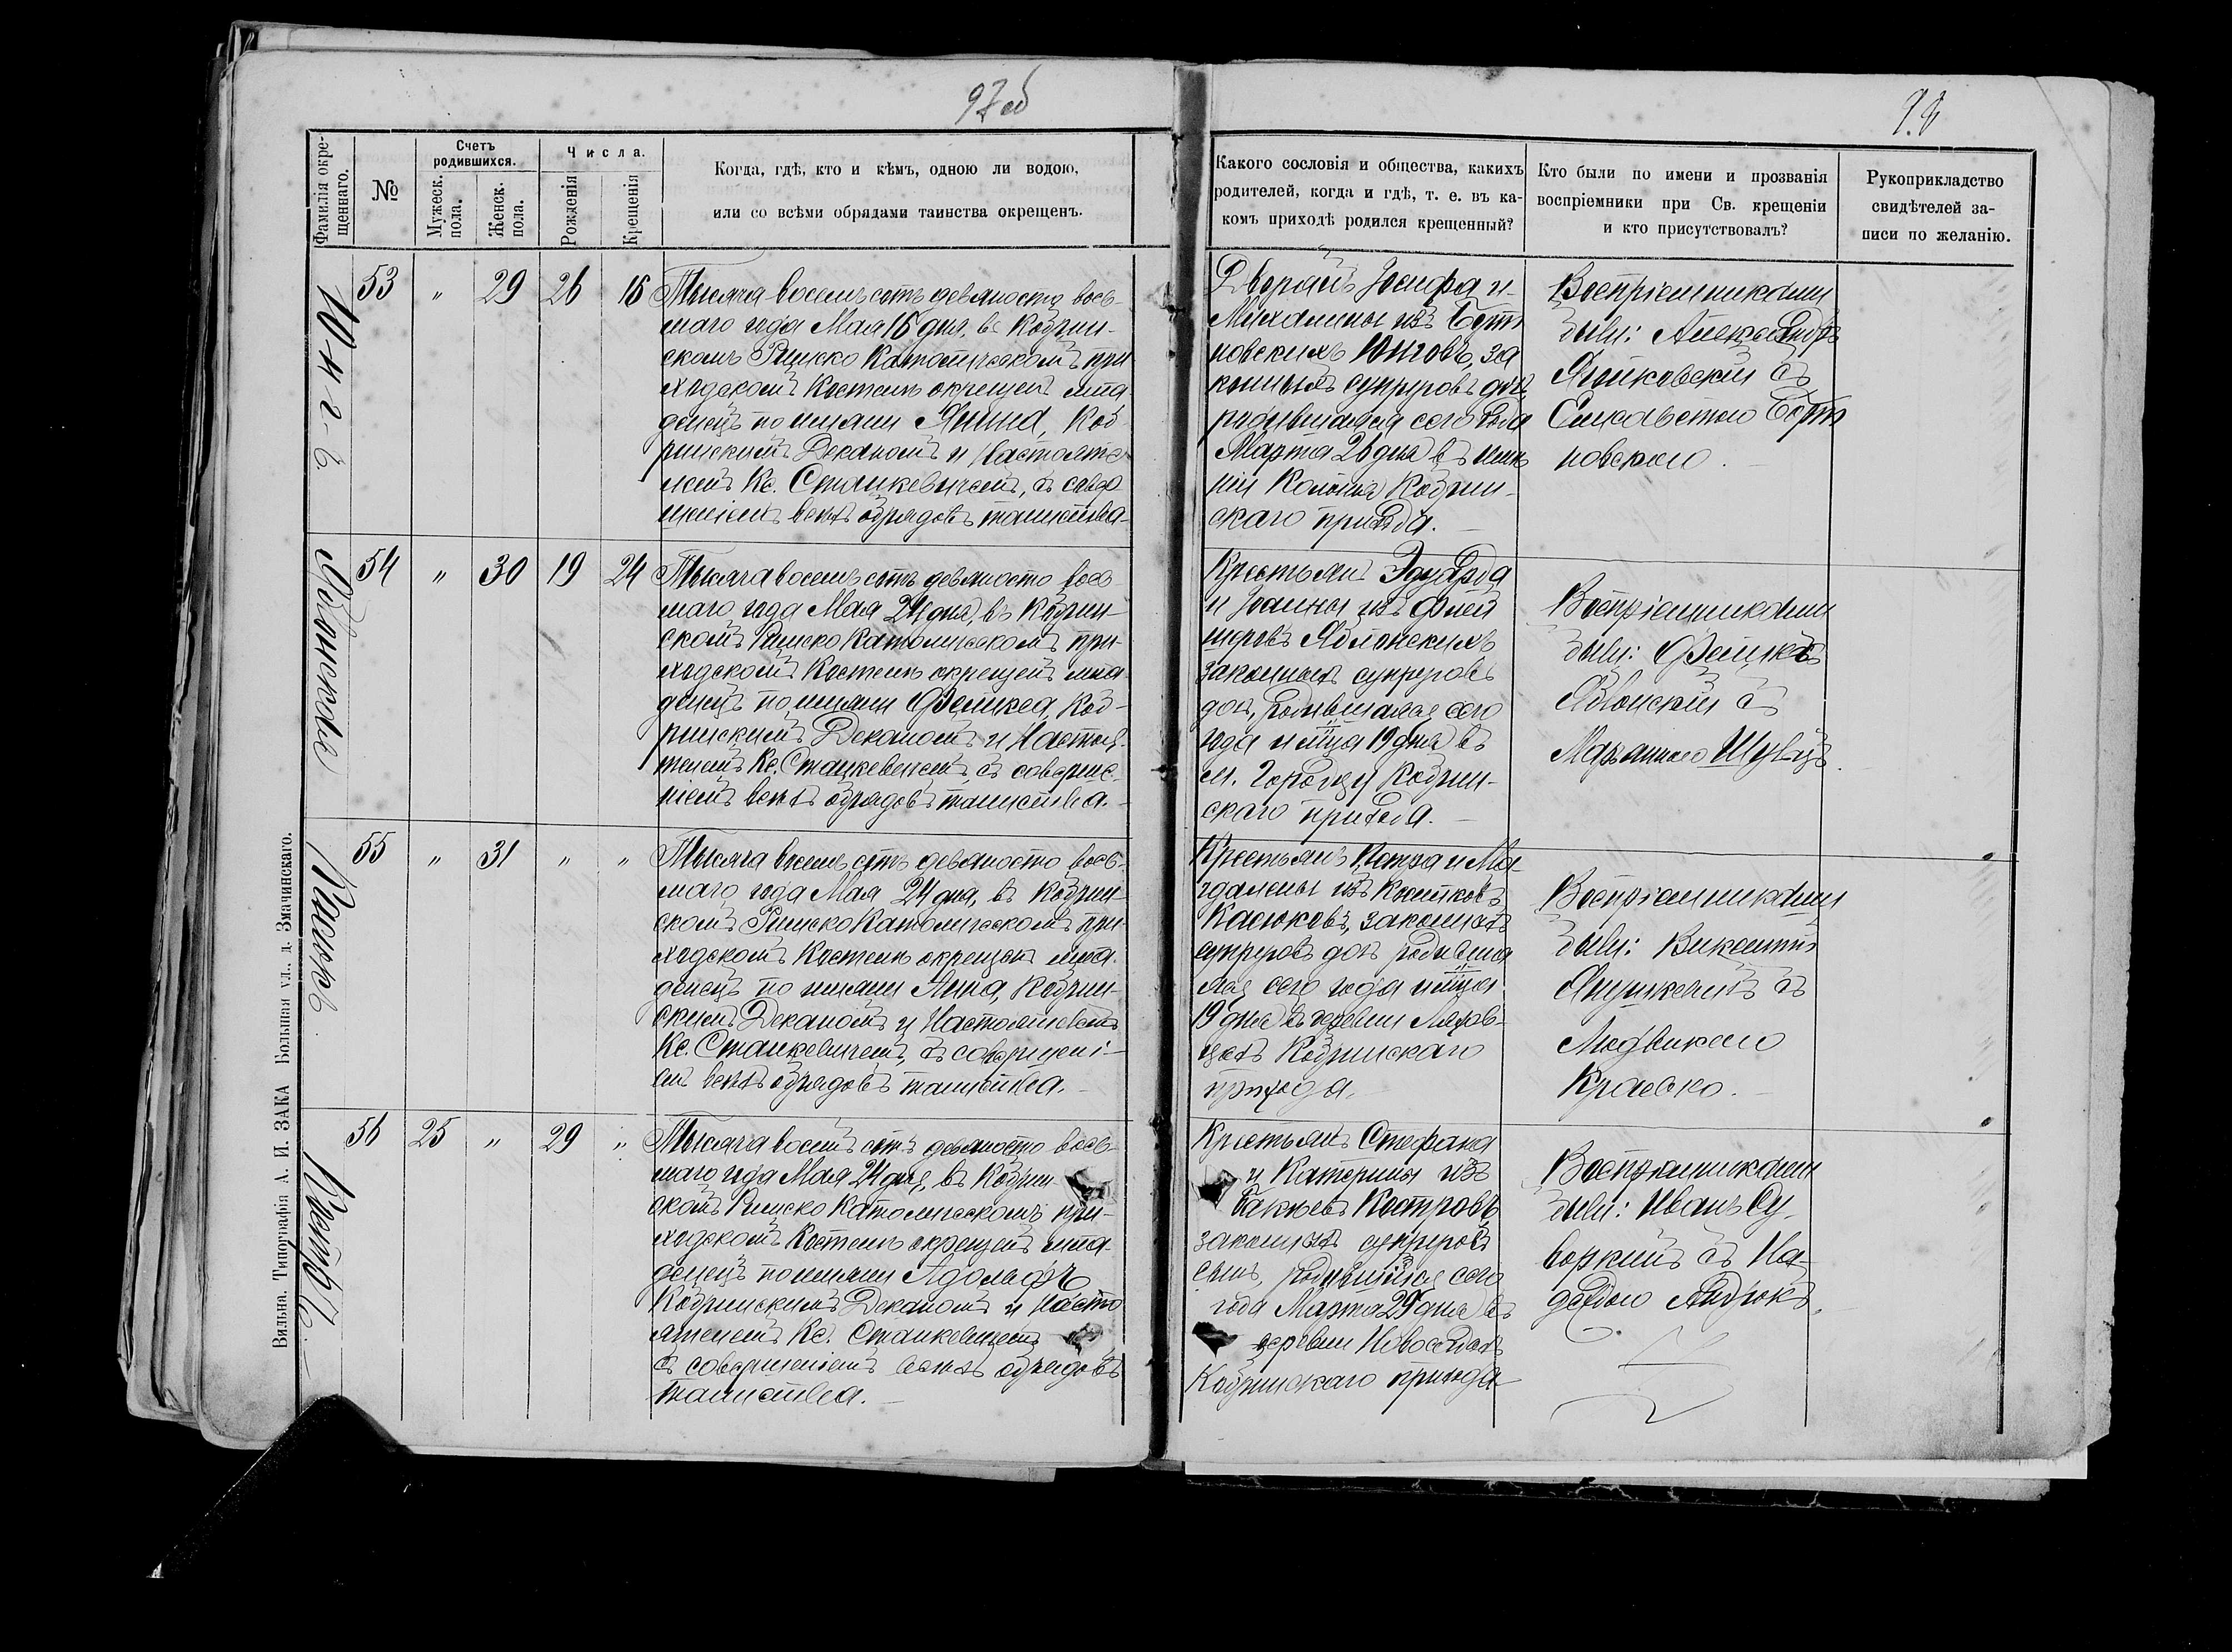 97об
98
Фамилія окрещеннаго.
№
Счетъ родившихся.
Мужеск. пола.
Женск. пола.
Числа.
Рожденія
Крещенія
Когда, гдѣ, кто и кѣмъ, одною ли водою,
или со всѣми обрядами таинства окрещенъ.
Какого сословія и общества, какихъ
родителей, когда и гдѣ, т. е. въ ка-
комъ приходѣ родился крещенный?
Кто были по имени и прозванія
воспріемники при Св. крещеніи
и кто присутствовалъ?
Рукоприкладство
свидѣтелей за-
писи по желанію.
53 " 29 26 16
Тысяча восемьсотъ девяносто вось-
маго года Мая 16 дня, въ Кобрин-
скомъ Римско Католическомъ при
ходскомъ Костелѣ окрещенъ мла
денецъ по имени Янина, Коб
ринскимъ Деканомъ и Настояте
лемъ Кс. Станкевичемъ, съ совер
шеніемъ всѣхъ обрядовъ таинства
Дворянъ Іосифа и
Михалины изъ
новскихъ Юнговъ, за
конныхъ супруговъ дочь,
родившаяся сего года
Марта 26 дня въ имѣ
ніи Кобрин-
скаго прихода.
Воспріемниками
были: Александръ
съ
Елисаветою
новскою.
54 " 30 19 24
Тысяча восемьсотъ девяносто вось
маго года Мая 24 дня, въ Кобрин-
скомъ Римско Католическомъ при-
ходскомъ Костелѣ окрещенъ мла
денецъ по имени Фелиksа, Коб-
ринскимъ Деканомъ и Настоя-
телемъ Кс. Станкевичемъ съ соверше-
ніемъ всѣхъ обрядовъ таинства.
Крестьянъ Эдуарда
и Іоанны изъ Флей
шеровъ Яблонскихъ
законныхъ супруговъ
дочь, родившаяся сего
года и мѣсяца 19 дня въ
м. Городцу Кобрин-
скаго прихода.
Воспріемниками
были: Феликсъ
Яблонскій съ
Маріанною
Касюкъ
55 " 31 " "
Тысяча восемьсотъ девяносто вось-
маго года Мая 24 дня, въ Кобрин-
скомъ Римско Католическомъ при
ходскомъ Костелѣ окрещенъ мла-
денецъ по имени Анна, Кобрин-
скимъ Деканомъ и Настоятелемъ
Кс. Станкевичемъ, съ совершені-
емъ всѣхъ обрядовъ таинства.
Крестьянъ и Ма-
гдалены изъ
Касюковъ, законныхъ
супруговъ дочь родивша
яся сего года и мѣсяца
19 дня въ деревни Ляхов-
цахъ Кобринскаго
прихода.
Воспріемниками
были: Викентій
съ
Людвикою
Краевско.
56 25 " 29 "
Тысяча восемьсотъ девяносто вось-
маго года Мая 24 дня, въ Кобрин
скомъ Римско Католическомъ при-
ходскомъ Костелѣ окрещенъ мла-
денецъ по имени Адольфъ
Кобринскимъ Деканомъ и Насто
ятелемъ Кс. Станкевичемъ
съ совершеніемъ всѣхъ обрядовъ
таинства.
Крестьянъ Стефана
и Катерины изъ
законныхъ супруговъ
сынъ, родившійся сего
года Марта 29 дня въ
деревни Новоселкахъ
Кобринскаго прихода
Воспріемниками
были: Иванъ Су
съ На-
деждою
Вильна. Типографія А. И. ЗАКА Большая ул., д. Змачинскаго.